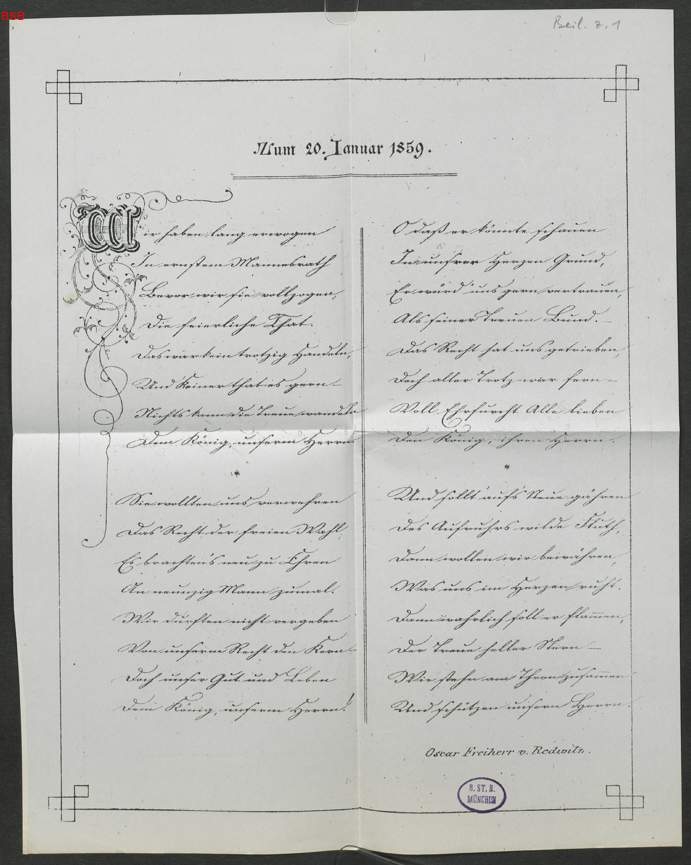 BSB
Beil. z. 1
Zum 20. Januar 1859.
Wir haben lang erwogen
In ernstem Mannesrath
Bevor wir sie vollzogen,
Die feierliche That.
Das war kein trotzig Handeln,
Und Keiner that es gern
Nichts kann die Treue wandeln
Dem König, unserm Herrn
*
Sie wollten uns verwehren
Das Recht der freien Wahl,
Es brachten's neu zu Ehren
An neunzig Mann zumal.
Wir durften nicht vergeben
Von unserm Recht den Kern
Doch unser Gut und Leben
Dem König, unserm Herrn!
O daß er könnte schauen
In unsrer Herzen Grund,
Er würd' uns gern vertrauen,
Als seiner treuen Bund. –
Das Recht hat uns getrieben,
Doch aller Trotz war fern –
Voll Ehrfurcht Alle lieben
Den König, ihren Herrn.
*
Und sollt' auf's Neue gähren
Des Aufruhrs wilde Fluth,
Dann wollen wir bewähren,
Was uns im Herzen ruht.
Dann wahrlich soll er flammen,
Der Treue heller Stern –
Wir stehn am Thron zusammen
Und schützen unsern Herrn.
Oscar Freiherr v. Redwitz.
B. ST. B.
MÜNCHEN